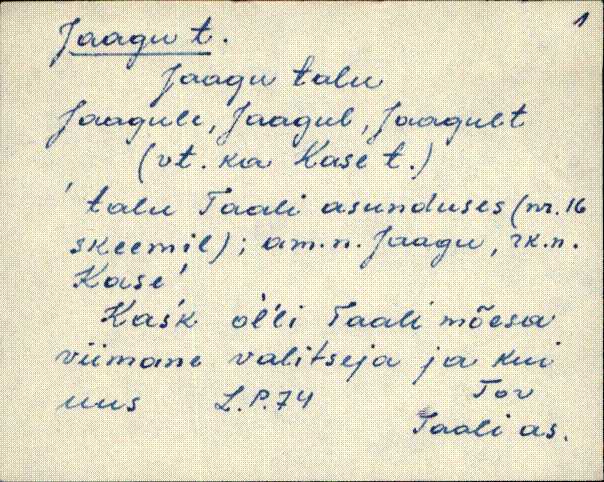 1
Jaagu t.
Jaagu talu
Jaagule, Jaagul, Jaagult
(vt. ka Kase t.)
'talu Taali asunduses (nr. 16
skeemil); am.n. Jaagu, rk.n.
Kase'
Kas'k oĺ'li Taali mõesa
viimane valitseja ja kui
uus L.P.74 Tov
Taali as.